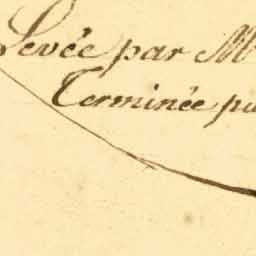 Levée par M
Terminée pa